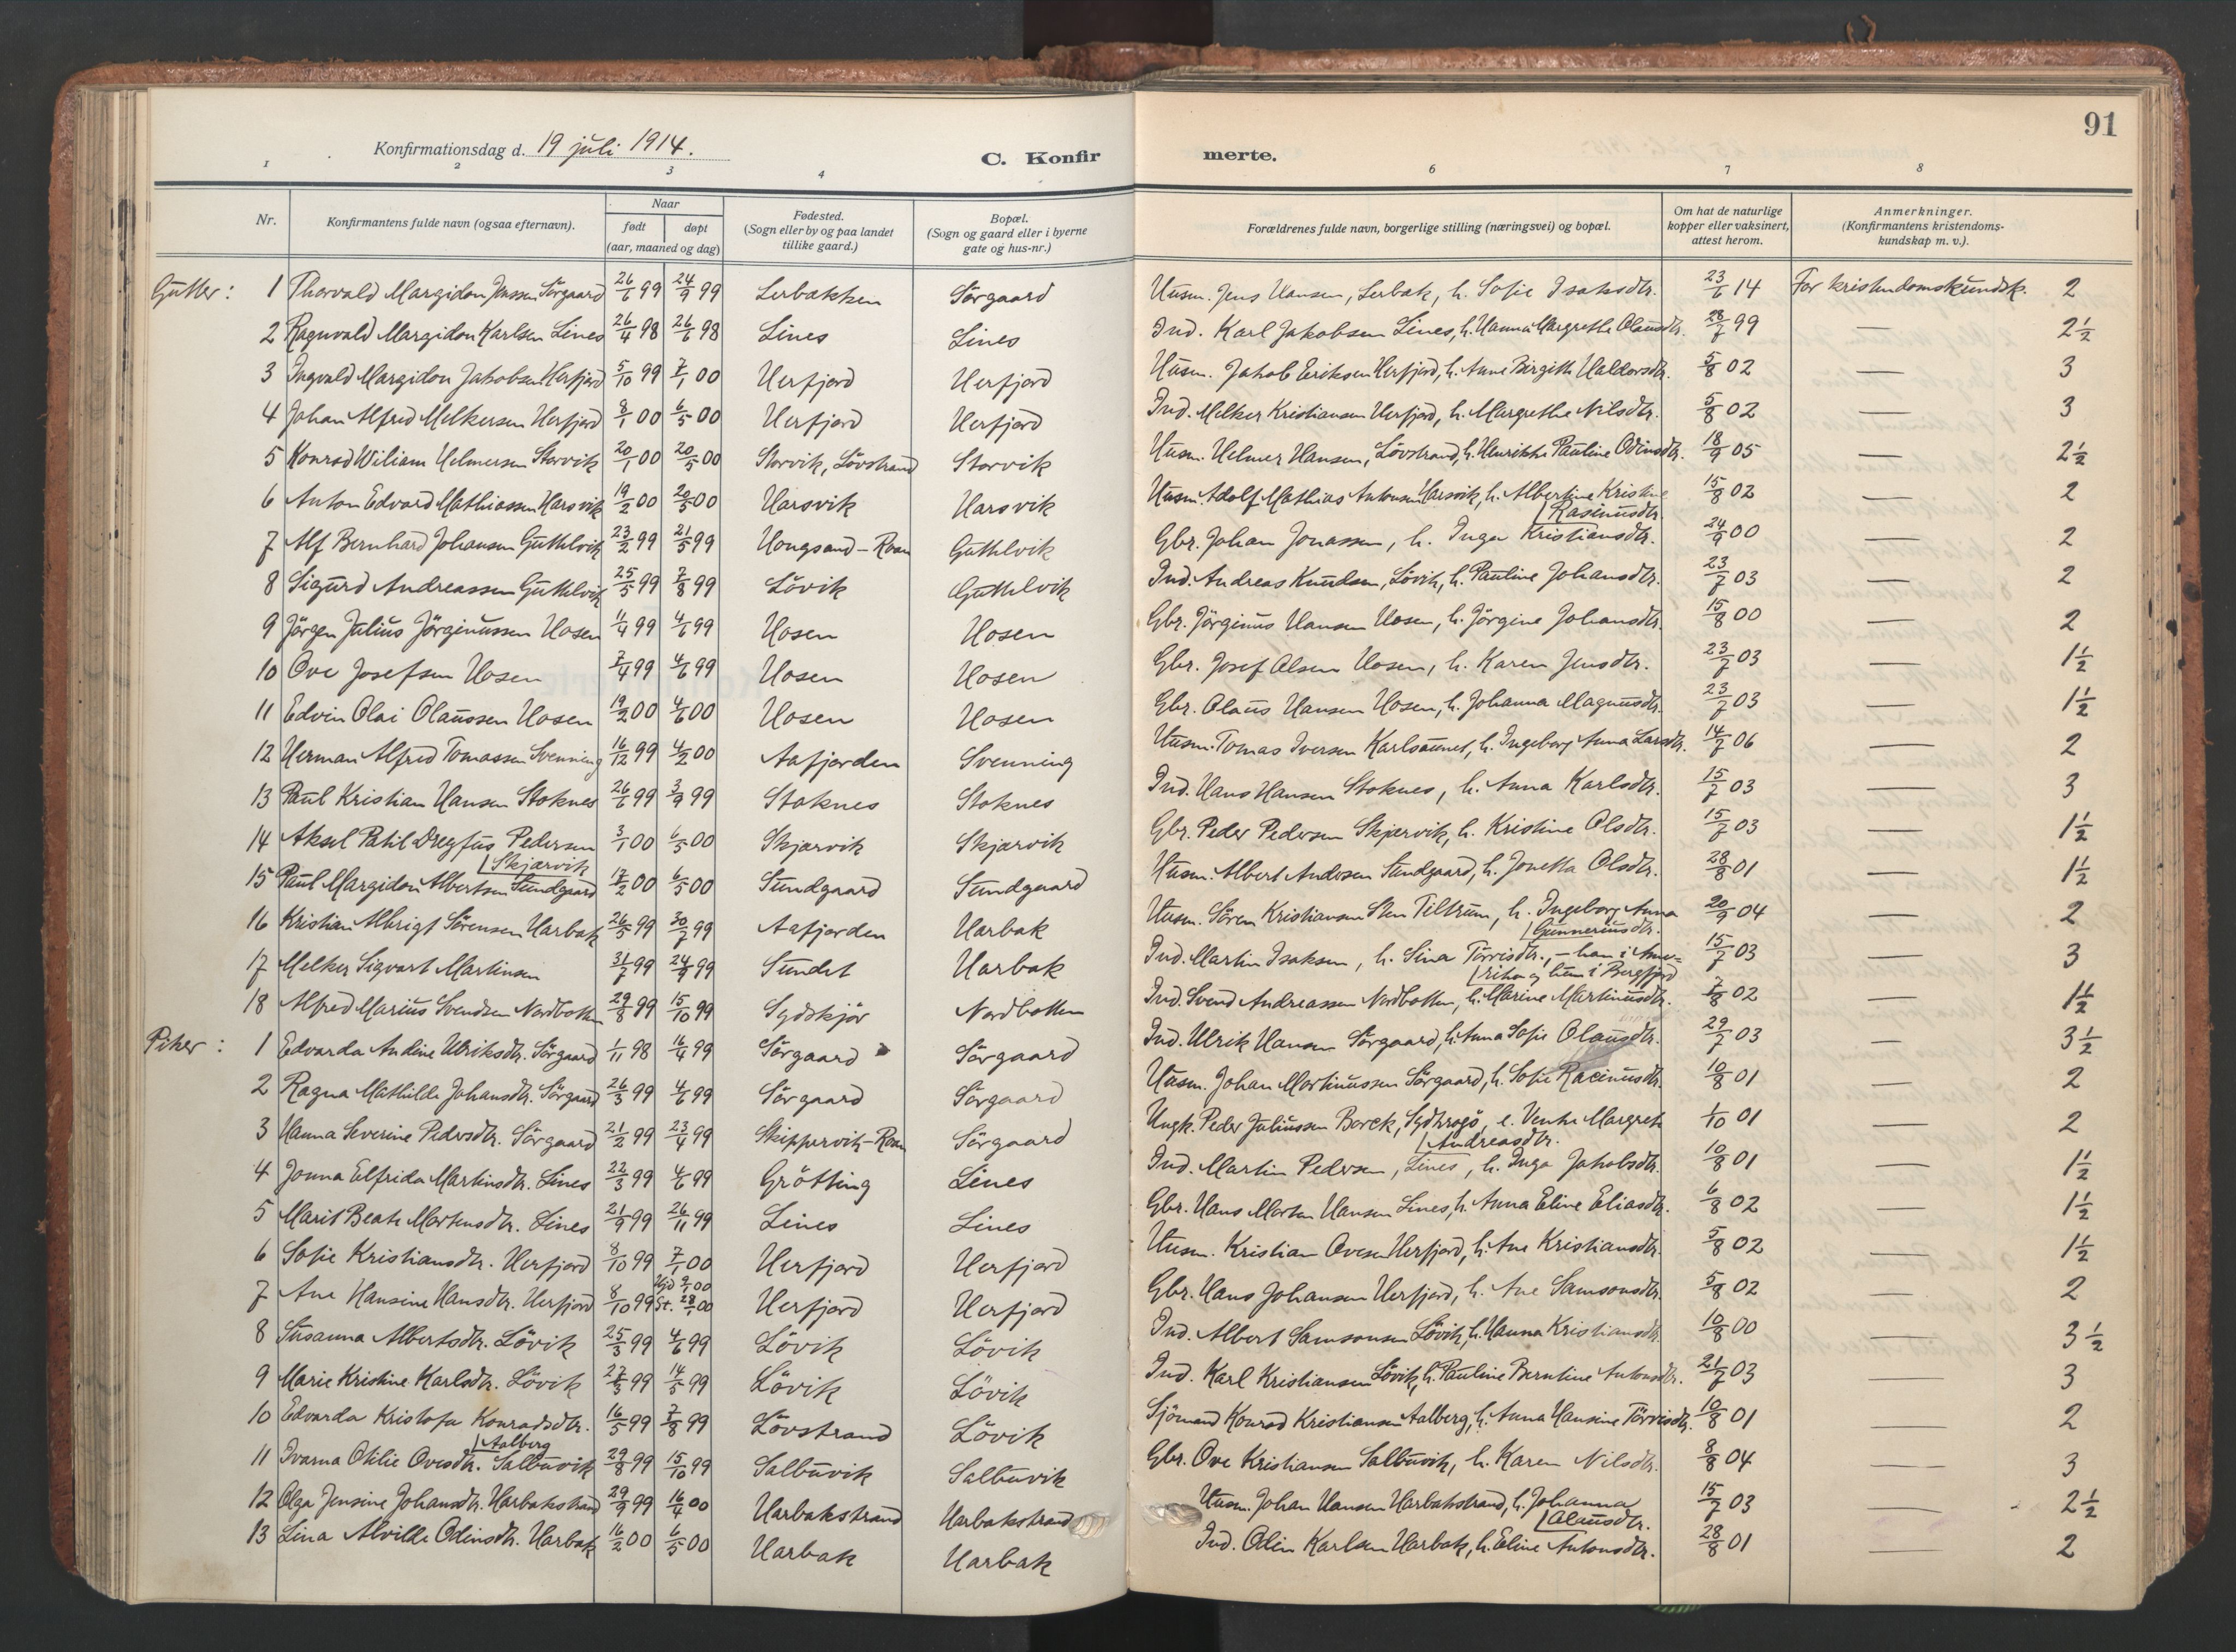 91
Konfirmationsdag d. 19 juli 1914.
C. Konfir merte.
1 2 3 4 6 7 8
Nr.
Konfirmantens fulde navn (ogsaa efternavn).
Naar
født døpt
(aar, maaned og dag)
Fødested.
(Sogn eller by og paa landet
tillike gaard.)
Bopæl.
(Sogn og gaard eller i byerne
gate og hus-nr.)
Forældrenes fulde navn, borgerlige stilling (næringsvei) og bopæl.
Om hat de naturlige
kopper eller vaksinert,
attest herom.
Anmerkninger.
(Konfirmantens kristendoms-
kundskap m. v.).
Gutter: 1 Thorvald Margidon Jenssen Sörgaard 26/6 99 24/9 99 Lerbakken Sörgaard Husm. Jens Hansen, Lerbak, h. Sofie Isaksdtr. 23/6 14 For kristendomskundsk. 2
2 Ragnvald Margidon Karlsen Lines 26/4 98 26/6 98 Lines Lines Ind. Karl Jakobsen Lines, h. Hanna Margrethe Olausdtr. 28/7 99 — 2½
3 Ingvald Margidon Jakobsen Herfjord 5/10 99 7/1 00 Herfjord Herfjord Husm. Jakob Eriksen Herfjord, h. Anne Birgith Haldorsdtr. 5/8 02 — 3
4 Johan Alfred Melkersen Herfjord 8/1 00 6/5 00 Herfjord Herfjord Ind. Melker Kristiansen Herfjord, h. Margrethe Nilsdtr. 5/8 02 — 3
5 Konrad Wiliam Helmersen Storvik 20/1 00 20/5 00 Storvik, Lövstrand Storvik Husm. Helmer Hansen, Lövstrand, h. Henrikke Pauline Odinsdtr. 18/9 05 — 2½
6 Anton Edvard Mathiassen Harsvik 19/2 00 20/5 00 Harsvik Harsvik Husm. Adolf Mathias Antonsen Harsvik, h. Albertine Kristine
Rasmusdtr. 15/8 02 — 2
7 Alf Bernhard Johansen Guthelvik 23/2 99 21/5 99 Hongsand-Roan Guthelvik Gbr. Johan Jonassen, h. Inga Kristiansdtr. 24/9 00 — 2
8 Sigurd Andreassen Guthelvik 25/5 99 7/8 99 Lövik Guthelvik Ind. Andreas Knudsen, Lövik, h. Pauline Johansdtr. 23/7 03 — 2
9 Jörgen Julius Jörginussen Hosen 11/4 99 4/6 99 Hosen Hosen Gbr. Jörginus Hansen Hosen, h. Jörgine Johansdtr. 15/8 00 — 2
10 Ove Josefsen Hosen 7/4 99 4/6 99 Hosen Hosen Gbr. Josef Olsen Hosen, h. Karen Jensdtr. 23/7 03 — 1½
11 Edvin Olai Olaussen Hosen 19/2 00 4/6 00 Hosen Hosen Gbr. Olaus Hansen Hosen, h. Johanna Magnusdtr. 23/7 03 — 1½
12 Herman Alfred Tomassen Svenning 16/12 99 4/2 00 Aafjorden Svenning Husm. Tomas Iversen Karlsaunet, h. Ingeborg Anna Larsdtr. 14/7 06 — 2
13 Paul Kristian Hansen Stoknes 26/6 99 3/9 99 Stoknes Stoknes Ind. Hans Hansen Stoknes, h. Anna Karlsdtr. 15/7 03 — 3
14 Aksel Patil Dreyfus Pedersen
Skjærvik 3/1 00 6/5 00 Skjærvik Skjærvik Gbr. Peder Pedersen Skjærvik, h. Kristine Olsdtr. 15/7 03 — 1½
15 Paul Margidon Albertsen Sundgaard 17/2 00 6/5 00 Sundgaard Sundgaard Husm. Albert Andersen Sundgaard, h. Jonetta Olsdtr. 28/8 01 — 1½
16 Kristian Albrigt Sörensen Harbak 26/5 99 30/7 99 Aafjorden Harbak Husm. Sören Kristiansen Sten Teltrum, h. Ingeborg Anna
Gunneriusdtr. 20/9 04 — 2
17 Melker Sigvart Martinsen 31/7 99 24/9 99 Sundet Harbak Ind. Martin Isaksen, h. Sina Törrisdtr., - ham i Ame-
rika og hun i Bergfjord 15/7 03 — 3
18 Alfred Marius Svendsen Nordbotten 29/8 99 15/10 99 Sydskjör Nordbotten Ind. Svend Andreassen Nordbotten, h. Marine Martinusdtr. 7/8 02 — 1½
Piker: 1 Edvarda Andine Ulriksdtr. Sörgaard 1/11 98 16/4 99 Sörgaard Sörgaard Ind. Ulrik Hansen Sörgaard, h. Anna Sofie Olausdtr. 29/7 03 — 3½
2 Ragna Mathilde Johansdtr. Sörgaard 26/3 99 4/6 99 Sörgaard Sörgaard Husm. Johan Martinussen Sörgaard, h. Sofie Racinusdtr. 10/8 01 — 2
3 Hanna Severine Pedersdtr. Sörgaard 21/2 99 23/4 99 Skippervik-Roan Sörgaard Ungk. Peder Juliussen Borck, Sydkrogö, e. Venke Margreth
Andreasdtr. 1/10 01 — 2
4 Jonna Elfrida Martinsdtr. Lines 22/3 99 4/6 99 Grötting Lines Ind. Martin Pedersen, Lines, h. Inga Jakobsdtr. 10/8 01 — 1½
5 Marit Beate Mortensdtr. Lines 21/9 99 26/11 99 Lines Lines Gbr. Hans Morten Hansen Lines, h. Anna Eline Eliasdtr. 6/8 02 — 1½
6 Sofie Kristiansdtr. Herfjord 8/10 99 7/1 00 Herfjord Herfjord Husm. Kristian Ovesen Herfjord, h. Ane Kristiansdtr. 5/8 02 — 1½
7 Ane Hansine Hansdtr. Herfjord 8/10 99 Hjd 9/1 00
St. 28/1 00 Herfjord Herfjord Gbr. Hans Johansen Herfjord, h. Ane Samsonsdtr. 5/8 02 — 2
8 Susanna Albertsdtr. Lövik 25/3 99 4/6 99 Lövik Lövik Ind. Albert Samsonsen Lövik, h. Hanna Kristiansdtr. 10/8 00 — 3½
9 Marie Kristine Karlsdtr. Lövik 27/3 99 14/5 99 Lövik Lövik Ind. Karl Kristiansen Lövik, h. Pauline Berntine Antonsdtr. 21/7 03 — 3
10 Edvarda Kristofa Konradsdtr.
Aalberg 16/5 99 7/8 99 Lövstrand Lövik Sjömand Konrad Kristiansen Aalberg, h. Anna Hansine Törrisdtr. 10/8 01 — 2
11 Ivarna Otilie Ovesdtr. Salbuvik 29/8 99 15/10 99 Salbuvik Salbuvik Gbr. Ove Kristiansen Salbuvik, h. Karen Nilsdtr. 8/8 04 — 3
12 Olga Jensine Johansdtr. Harbakstrand 29/9 99 16/4 00 Harbakstrand Harbakstrand Husm. Johan Hansen Harbakstrand, h. Johanna
Olausdtr. 15/7 03 — 2½
13 Lina Alvilde Odinsdtr. Harbak 16/2 00 6/5 00 Harbak Harbak Ind. Odin Karlsen Harbak, h. Eline Antonsdtr. 28/8 01 — 2